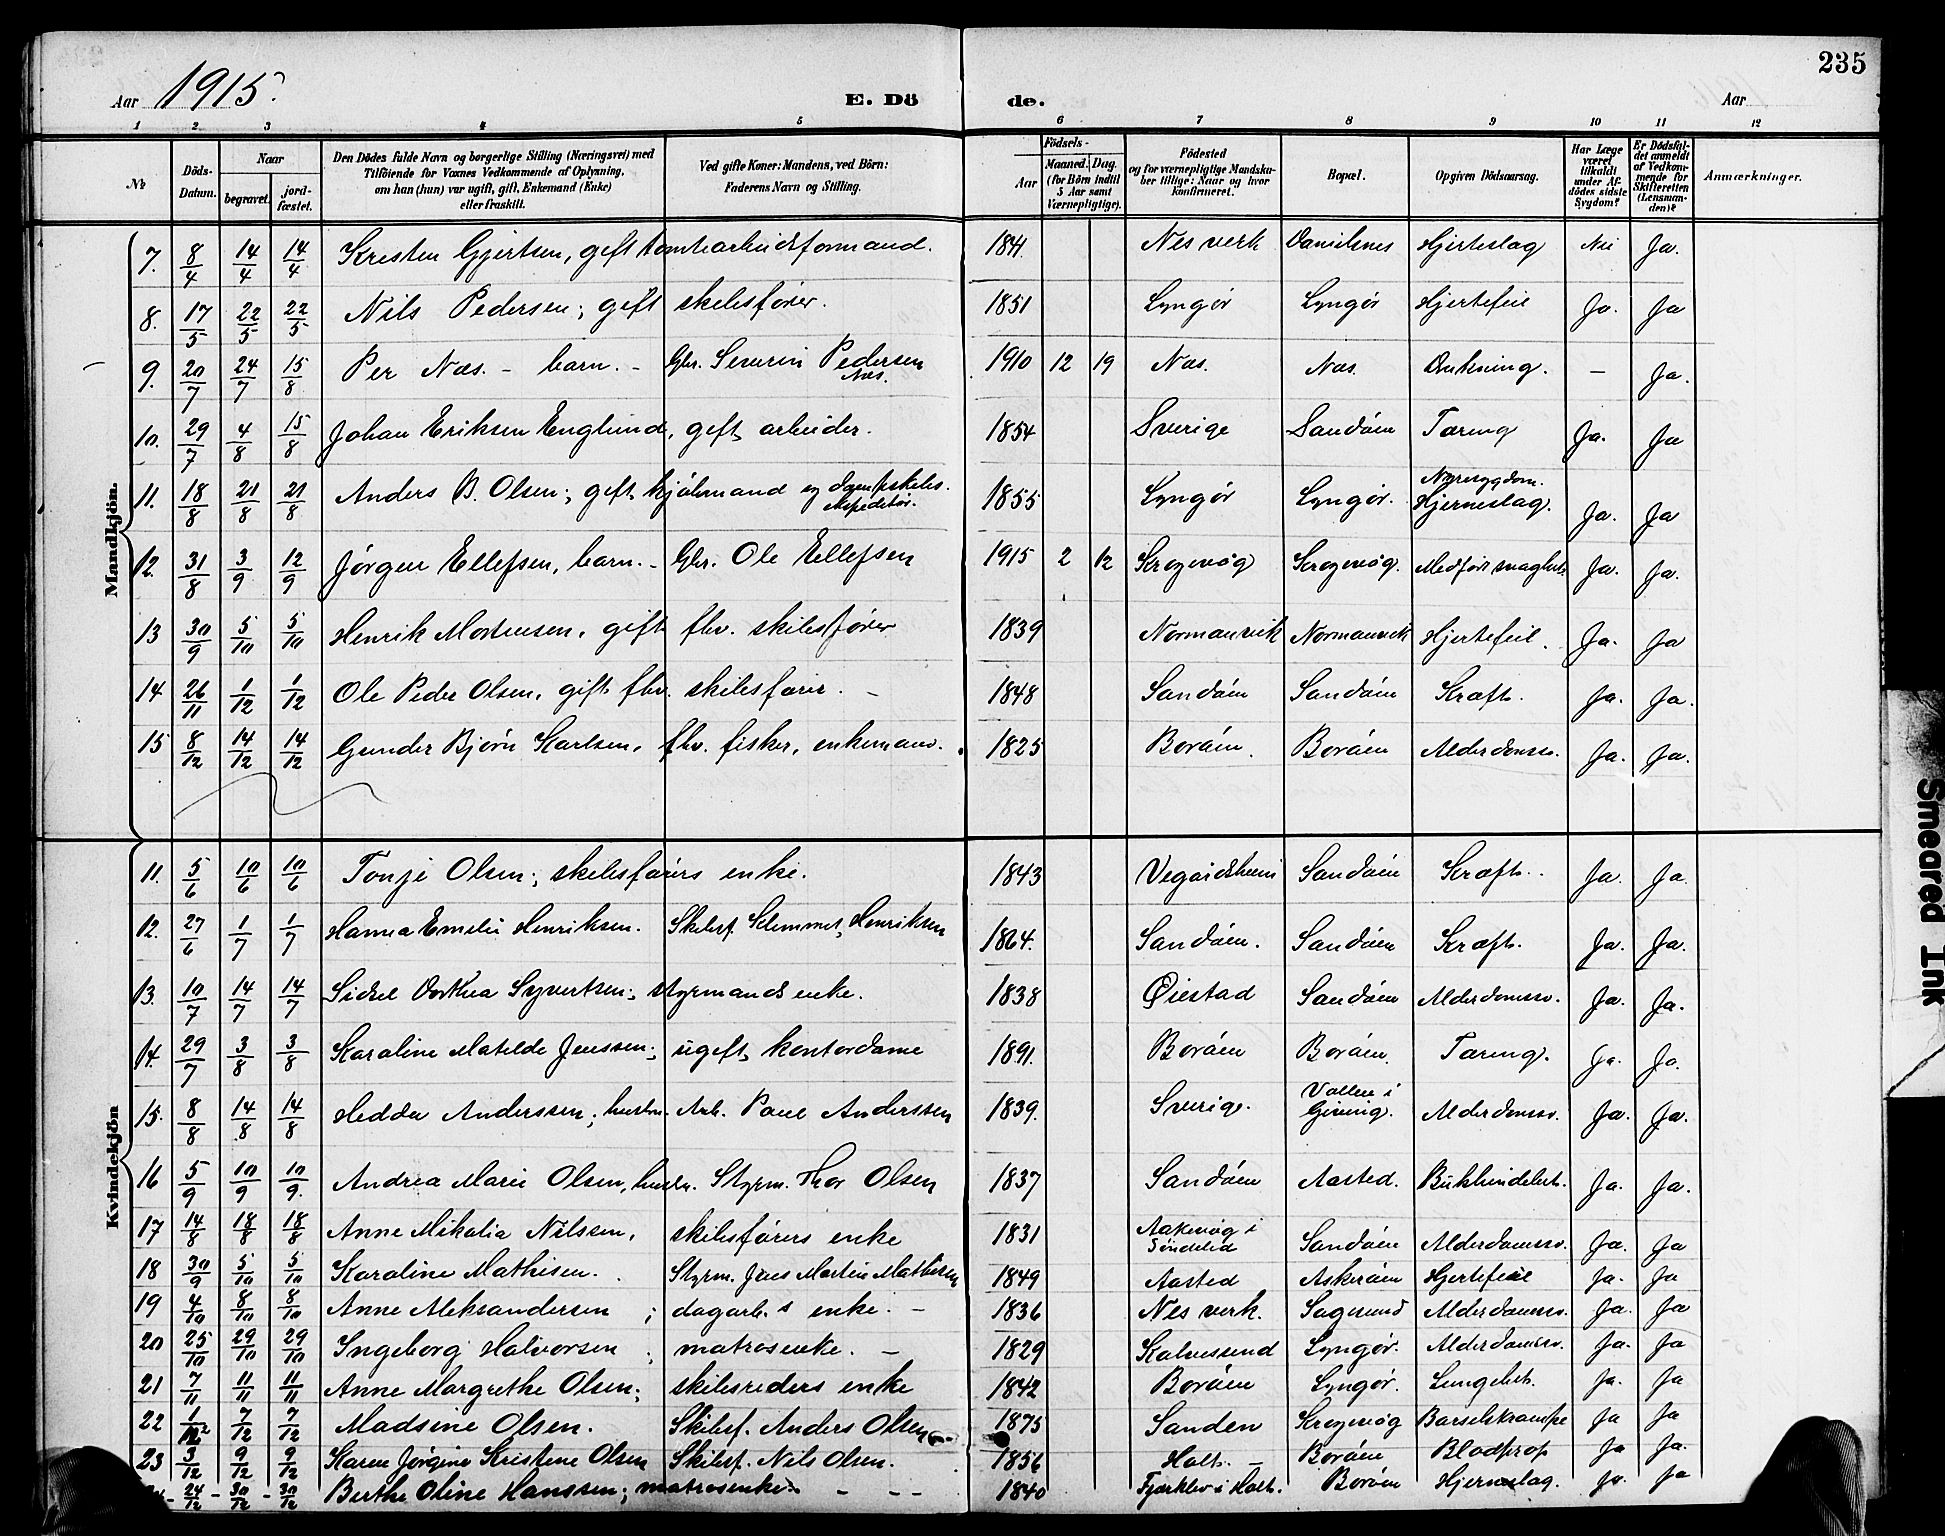 235
Aar 1915.
E. Dö de.
Aar
1 2 3 4 5 6 7 8 9 10 11 12
№
Döds-Datum.
Naar
begravet.
jord-fæstet.
Den Dödes fulde Navn og borgerlige Stilling (Næringsvei) med
Tilföiende for Voxnes Vedkommende af Oplysning,
om han (hun) var ugift, gift, Enkemand (Enke)
eller fraskilt.
Ved gifte Koner: Mandens, ved Börn:
Faderens Navn og Stilling.
Födsels-
Aar
Maaned. Dag.
(for Börn indtil
5 Aar samt
Værnepligtige).
Födested
og for værnepligtige Mandska-
ber tillige: Naar og hvor
konfirmeret.
Bopæl.
Opgiven Dödsaarsag.
Har Læge
været
tilkaldt
under Af-
dödes sidste
Sygdom?
Er Dödsfal-
det anmeldt
af Vedkom-
mende for
Skifteretten
(Lensman-
den)?
Anmærkninger.
Mandkjön.
7. 8/4 14/4 14/4 Kristen Gjertsen, gift tomtearbeidsformand. 1841 Nes verk Danielsnes Hjerteslag Nei Ja.
8. 17/5 22/5 22/5 Nils Pedersen; gift skibsfører. 1851 Lyngør Lyngør Hjertefeil Ja. Ja
9. 20/7 24/7 15/8 Per Næs. - barn. - Gbr. Severin Pedersen Næs. 1910 12 19 Næs. Næs. Drukning. - Ja.
10. 29/7 4/8 15/8 Johan Eriksen Englund, gift arbeider. 1854 Sverige Sandøen Tæring Ja. Ja
11. 18/8 21/8 21/8 Anders B. Olsen; gift kjøbmand og dampskibs-ekspeditør. 1855 Lyngør Lyngør. Nyresygdom. Hjerneslag. Ja. Ja
12. 31/8 3/9 12/9 Jørgen Ellefsen, barn. - Gbr. Ole Ellefsen 1915 2 12 Krogevåg Krogevåg. Medfødt svaghet Ja. Ja.
13 30/9 5/10 5/10 Henrik Mortensen, gift fhv. skibsfører 1839 Normanvik Normanvik Hjertefeil. Ja. Ja
14 26/11 1/12 1/12 Ole Peder Olsen, gift fhv. skibsfører. - 1848 Sandøen Sandøen Kræft. Ja. Ja.
15 8/12 14/12 14/12 Gunder Bjørn Karlsen, fhv. fisker, enkemand. 1825 Borøen. Borøen Alderdomssv. Ja. Ja.
Kvindekjön
11. 5/6 10/6 10/6 Tonje Olsen; skibsførers enke. 1843 Vegårdsheien Sandøen Kræft. Ja. Ja.
12. 27/6 1/7 1/7 Hanna Emelie Henriksen. Skibsf. Klemmet Henriksen 1864. Sandøen. Sandøen Kræft. Ja. Ja.
13. 10/7 14/7 14/7 Sidsel Dorthea Syvertsen; styrmands enke. 1838 Øiestad Sandøen Alderdomssv. Ja. Ja.
14. 29/7 3/8 3/8 Karoline Matilde Jenssen; ugift kontordame 1891. Borøen Borøen. Tæring. Ja. Ja.
15. 8/8 14/8 14/8 Hedda Anderssen; hustru. Arb. Paul Anderssen 1839. Sverige. Vollen i Gjeving. Alderdomssv. Ja. Ja.
16 5/9 10/9 10/9. Andrea Marie Olsen, hustru. Styrm. Thor Olsen 1837 Sandøen Aasted. Bukhindebet. Ja. Ja.
17 14/8 18/8 18/8 Anne Mikalia Nilssen, skibsførers enke 1831 Aakvåg i Søndeled Sandøen Alderdomssv. Ja. Ja
18 30/9 5/10 5/10 Karoline Mathisen. Styrm. Jens Martin Mathisen 1849 Aasted Askerøen Hjertefeil Ja. Ja
19 4/10 8/10 8/10 Anne Aleksandersen; dagarb.s enke. - 1836 Nes verk. Sagesund Alderdomssv. Ja. Ja
20 25/10 29/10 29/10 Ingeborg Halvorsen; matrosenke. - 1829 Kalvesund Lyngør. Alderdomssv. Ja. Ja
21 7/11 11/11 11/11 Anne Margrethe Olsen; skibsreders enke 1842 Borøen Lyngør. Lungebet. Ja. Ja
22 1/12 7/12 7/12 Madsine Olsen. Skibsf. Anders Olsen 1875 Sanden Krogevåg Barselskrampe Ja Ja
23 3/12 9/12 9/12 Karen Jørgine Kristene Olsen Skibsf. Nils Olsen. 1856 Holt. - Borøen Blodprop Ja Ja.
24 - 24/12 - 30/12 - 30/12 Berthe Oline Hanssen; matrosenke. - - - 1840 Fjærkleiv i Holt. Borøen Hjerneslag. Ja. Ja
Smeared Ink